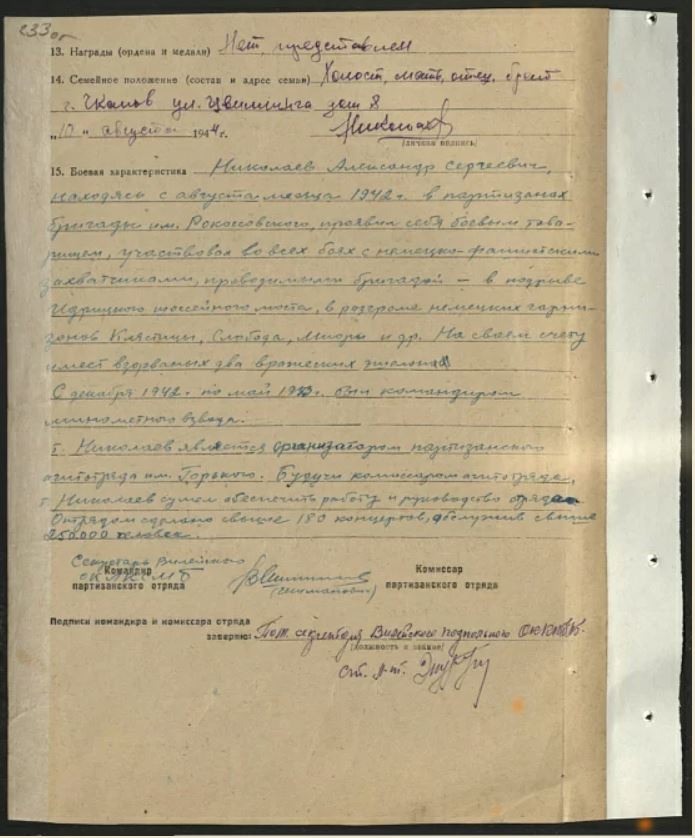 233 об
13. Награды (ордена и медали) Нет, представлен
14. Семейное положение (состав и адрес семьи) Холост, мать, отец, брат
г. Чкалов ул. Цвиллинга дом 8
„10" августа 1944 г. Николаев
(личная подпись)
15. Боевая характеристика Николаев Александр Сергеевич,
находясь с августа месяца 1942 г. в партизанах
бригады им. Рокоссовского, проявил себя боевым това-
рищем, участвовал во всех боях с немецко-фашистскими
захватчиками, проводимыми бригадой – в подрыве
Идрицкого шоссейного моста, в разгроме немецких гарни-
зонов Клястицы, Слобода, Миоры и др. На своем счету
имеет взорваных два вражеских эшелона
С декабря 1942 г. по май 1943 г. был командиром
минометного взвода.
т. Николаев является организатором партизанского
агитотряда им. Горького. Будучи комиссаром агитотряда,
т. Николаев сумел обеспечить работу и руководство отрядом
Отрядом сделано свыше 180 концертов, обслужив свыше
250.000 человек.
Секретарь Вилейского
ОК ЛКСМБ
Командир
партизанского отряда
(Климанович)
Комиссар
партизанского отряда
Подписи командира и комиссара отряда
заверяю: Пом. секретаря Вилейского подпольного
(должность и звание)
ст. л-т.